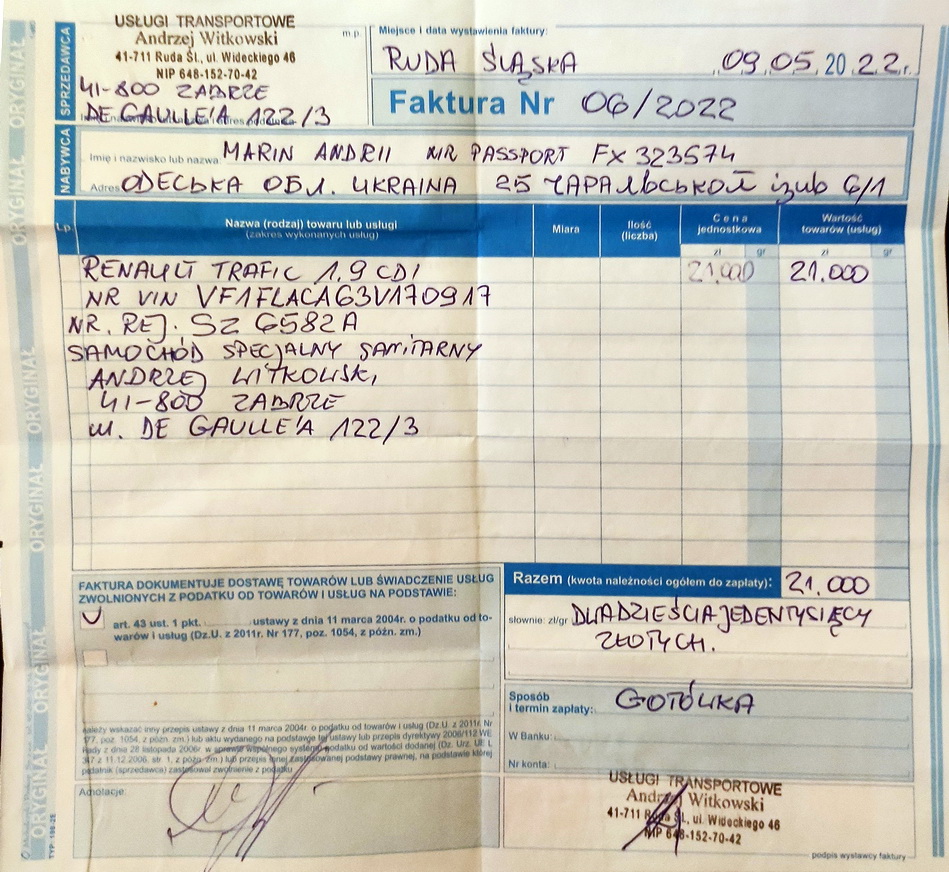 ORYGINAŁ ORYGINAŁ ORYGINAŁ ORYGINAŁ ORYGINAŁ
SPRZEDAWCA
USŁUGI TRANSPORTOWE
Andrzej Witkowski
41-711 Ruda Śl., ul. Wideckiego 46
NIP 648-152-70-42
m.p.
41-800 ZABRZE
DE GAULLE'A 122/3
Miejsce i data wystawienia faktury:
RUDA ŚLĄSKA 09.05.2022r.
Faktura Nr 06/2022
NABYWCA
Imię i nazwisko lub nazwa: MARIN ANDRII NR PASSPORT FX 323574
Adres ОДЕСЬКА ОБЛ. UKRAINA 25 ЧАПАЛЬСЬКОЙ 6/1
Lp. Nazwa (rodzaj) towaru lub usługi Miara Ilość Cena Wartość
(zakres wykonanych usług) (liczba) jednostkowa towarów (usług)
zł gr zł gr
RENAULT TRAFIC 1.9 CDI 21.000 21.000
NR VIN VF1FLACA63V170917
NR. REJ. SZ 6582A
SAMOCHÓD SPECJALNY SANITARNY
ANDRZEJ WITKOWSKI,
41-800 ZABRZE
ul. DE GAULLE'A 122/3
FAKTURA DOKUMENTUJE DOSTAWĘ TOWARÓW LUB ŚWIADCZENIE USŁUG
ZWOLNIONYCH Z PODATKU OD TOWARÓW I USŁUG NA PODSTAWIE:
art. 43 ust. 1 pkt. ........ ustawy z dnia 11 marca 2004r. o podatku od to-
warów i usług (Dz.U. z 2011r. Nr 177, poz. 1054, z późn. zm.)
Razem (kwota należności ogółem do zapłaty): 21.000
słownie: zł/gr DWADZIEŚCIAJEDENTYSIĘCY
ZŁOTYCH.
Sposób
i termin zapłaty: GOTÓWKA
W Banku:
Nr konta:
należy wskazać inny przepis ustawy z dnia 11 marca 2004r. o podatku od towarów i usług (Dz.U. z 2011r. Nr
177, poz. 1054, z późn. zm.) lub aktu wydanego na podstawie tej ustawy lub przepis dyrektywy 2006/112 WE
Rady z dnia 28 listopada 2006r. w sprawie wspólnego systemu podatku od wartości dodanej (Dz. Urz. UE L
347 z 11.12.2006, str. 1, z późn. zm.) lub przepis innej zastosowanej podstawy prawnej, na podstawie której
podatnik (sprzedawca) zastosował zwolnienie z podatku
Adnotacje:
USŁUGI TRANSPORTOWE
Andrzej Witkowski
41-711 Ruda Śl., ul. Wideckiego 46
NIP 648-152-70-42
podpis wystawcy faktury